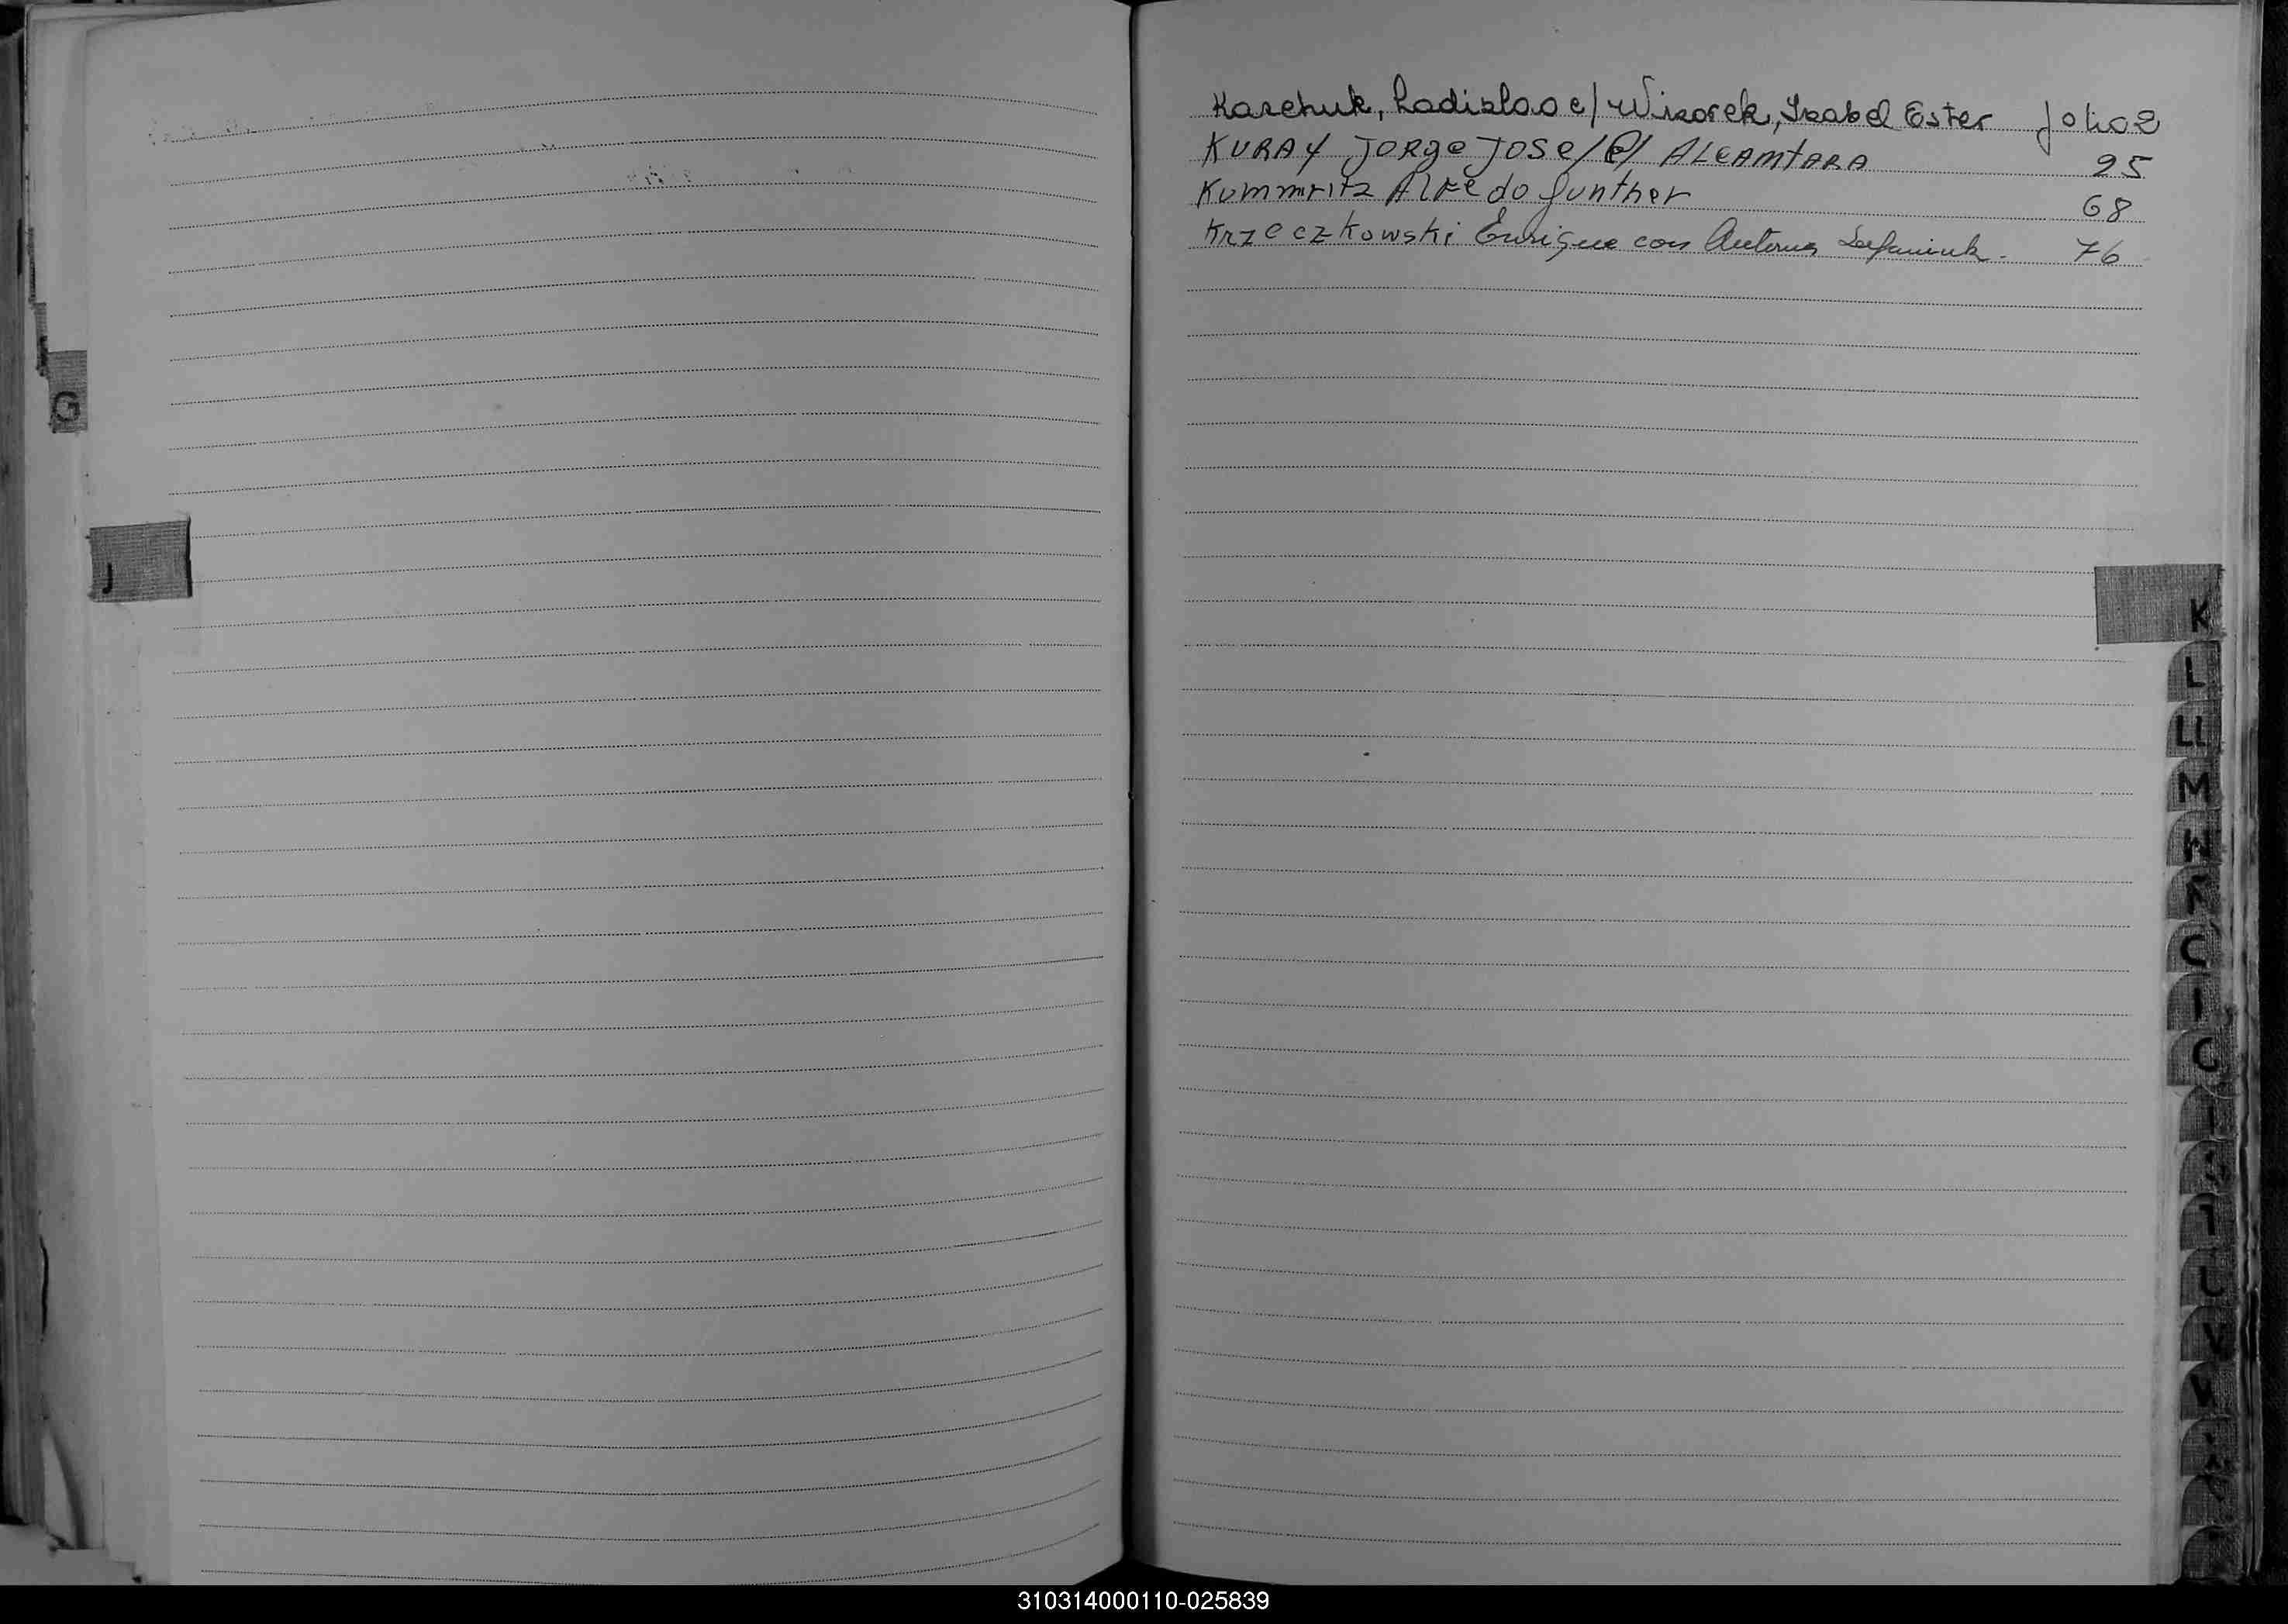 G
J
Karchuk, Ladislao c/ Wizorek, Isabel Ester folio 2
KURAY JORge JOSe /C/ ALCAMtARA 25
Kummritz Alfredo Gunther 68
Krzeczkowski Enrique con Antonia 76
K
L
LL
M
N
310314000110-025839